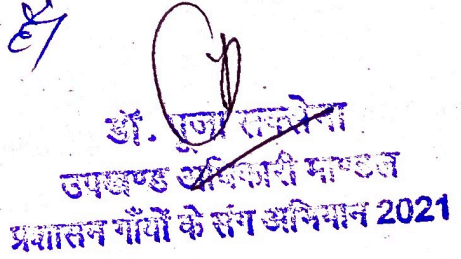 है
डॉ. पूजा सक्सेना
उपखण्ड अधिकारी माण्डल
प्रशासन गाँवों के संग अभियान 2021